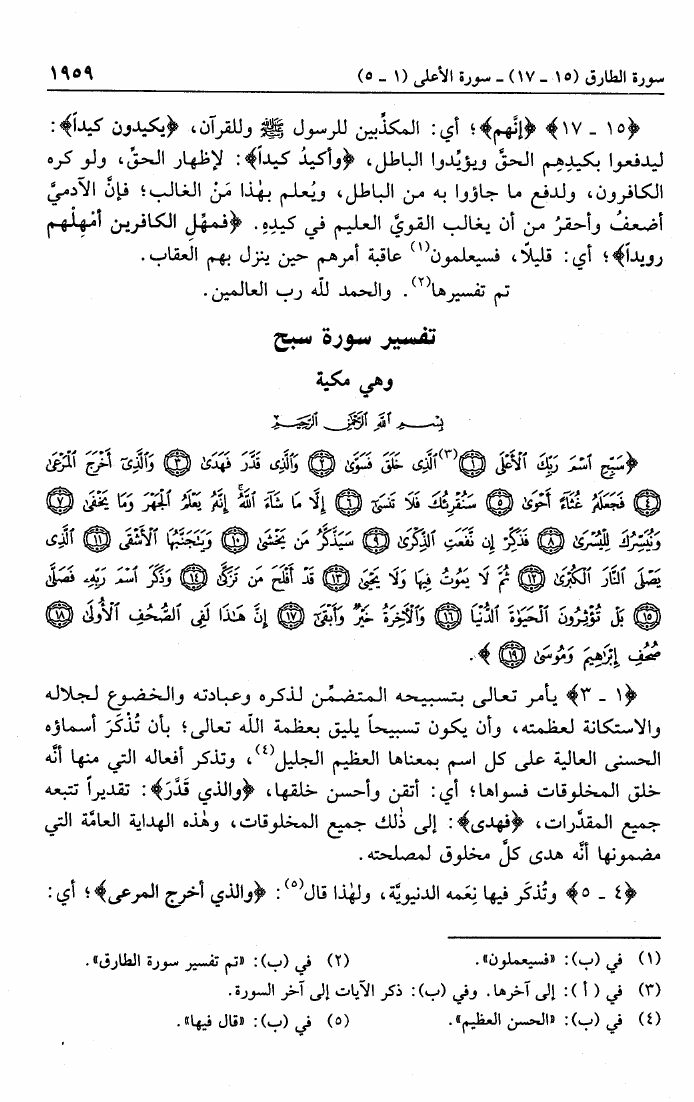 سورة الطارق (١٥ ـ ١٧) ـ سورة الأعلى (١ ـ ٥) ١٩٥٩
﴿١٥ ـ ١٧﴾ ﴿إنَّهم﴾؛ أي: المكذِّبين للرسول ﷺ وللقرآن، ﴿يكيدون كيداً﴾:
ليدفعوا بكيدِهِم الحقَّ ويؤيِّدوا الباطل، ﴿وأكيدُ كيداً﴾: لإظهار الحقِّ، ولو كره
الكافرون، ولدفع ما جاؤوا به من الباطل، ويُعلم بهٰذا مَنْ الغالب؛ فإنَّ الآدميَّ
أضعفُ وأحقرُ من أن يغالب القويَّ العليم في كيدِهِ. ﴿فمهِّل الكافرين أمْهِلْهم
رويداً﴾؛ أي: قليلًا، فسيعلمون(١) عاقبة أمرهم حين ينزل بهم العقاب.
تم تفسيرها(٢). والحمد للّه رب العالمين.
تفسير سورة سبح
وهي مكية
بِسْمِ ٱللَّهِ ٱلرَّحْمَٰنِ ٱلرَّحِيمِ
﴿سَبِّحِ ٱسْمَ رَبِّكَ ٱلْأَعْلَى ۝١(٣) ٱلَّذِى خَلَقَ فَسَوَّىٰ ۝٢ وَٱلَّذِى قَدَّرَ فَهَدَىٰ ۝٣ وَٱلَّذِىٓ أَخْرَجَ ٱلْمَرْعَىٰ
۝٤ فَجَعَلَهُۥ غُثَآءً أَحْوَىٰ ۝٥ سَنُقْرِئُكَ فَلَا تَنسَىٰٓ ۝٦ إِلَّا مَا شَآءَ ٱللَّهُ ۚ إِنَّهُۥ يَعْلَمُ ٱلْجَهْرَ وَمَا يَخْفَىٰ ۝٧
وَنُيَسِّرُكَ لِلْيُسْرَىٰ ۝٨ فَذَكِّرْ إِن نَّفَعَتِ ٱلذِّكْرَىٰ ۝٩ سَيَذَّكَّرُ مَن يَخْشَىٰ ۝١٠ وَيَتَجَنَّبُهَا ٱلْأَشْقَى ۝١١ ٱلَّذِى
يَصْلَى ٱلنَّارَ ٱلْكُبْرَىٰ ۝١٢ ثُمَّ لَا يَمُوتُ فِيهَا وَلَا يَحْيَىٰ ۝١٣ قَدْ أَفْلَحَ مَن تَزَكَّىٰ ۝١٤ وَذَكَرَ ٱسْمَ رَبِّهِۦ فَصَلَّىٰ
۝١٥ بَلْ تُؤْثِرُونَ ٱلْحَيَوٰةَ ٱلدُّنْيَا ۝١٦ وَٱلْآخِرَةُ خَيْرٌ وَأَبْقَىٰٓ ۝١٧ إِنَّ هَٰذَا لَفِى ٱلصُّحُفِ ٱلْأُولَىٰ ۝١٨
صُحُفِ إِبْرَٰهِيمَ وَمُوسَىٰ ۝١٩﴾.
﴿١ ـ ٣﴾ يأمر تعالى بتسبيحه المتضمِّن لذكره وعبادته والخضوع لجلاله
والاستكانة لعظمته، وأن يكون تسبيحاً يليق بعظمة اللّه تعالى؛ بأن تُذْكَرَ أسماؤه
الحسنى العالية على كل اسم بمعناها العظيم الجليل(٤)، وتذكر أفعاله التي منها أنَّه
خلق المخلوقات فسواها؛ أي: أتقن وأحسن خلقها، ﴿والذي قَدَّرَ﴾: تقديراً تتبعه
جميع المقدَّرات، ﴿فهدى﴾: إلى ذٰلك جميع المخلوقات، وهٰذه الهداية العامَّة التي
مضمونها أنَّه هدى كلَّ مخلوق لمصلحته.
﴿٤ ـ ٥﴾ وتُذكَر فيها نِعَمه الدنيويَّة، ولهٰذا قال(٥): ﴿والذي أخرج المرعى﴾؛ أي:
(١) في (ب): «فسيعملون». (٢) في (ب): «تم تفسير سورة الطارق».
(٣) في (أ): إلى آخرها. وفي (ب): ذكر الآيات إلى آخر السورة.
(٤) في (ب): «الحسن العظيم». (٥) في (ب): «قال فيها».